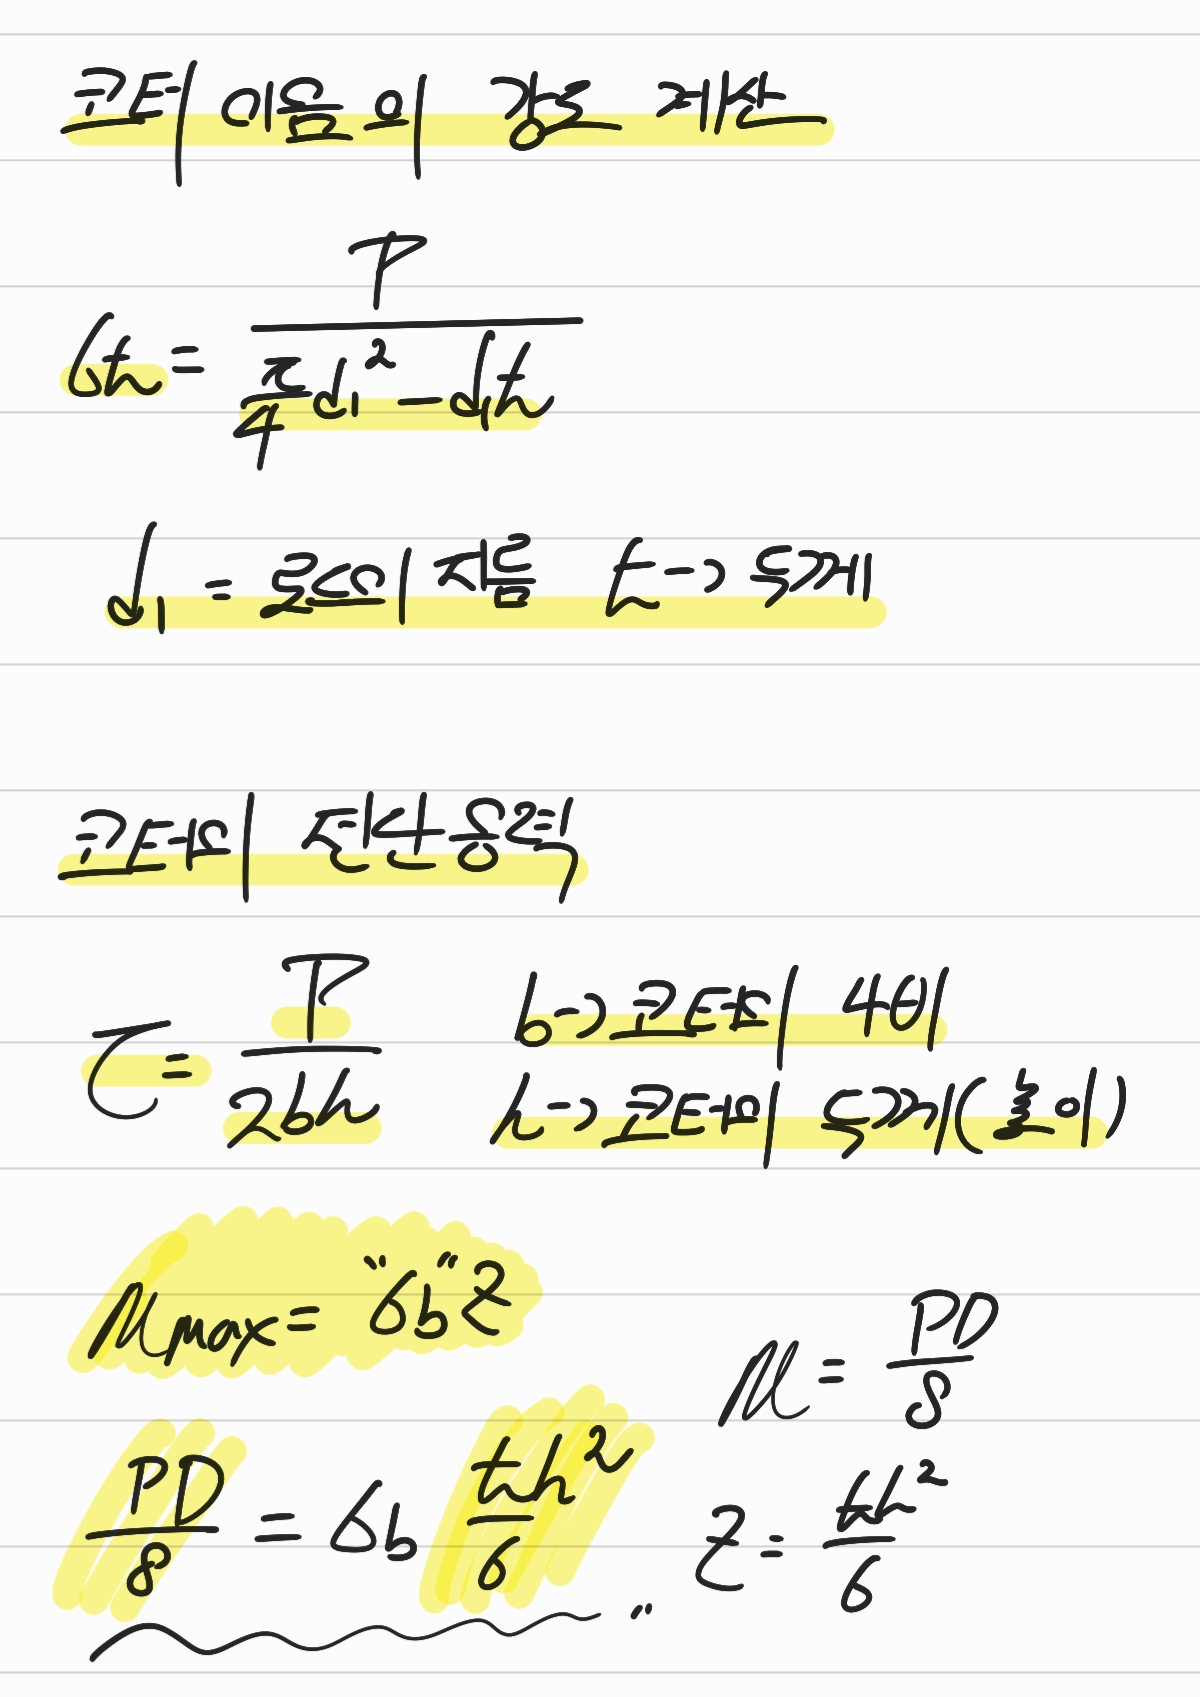 코터 이음의 강도 계산
σt = P / (π/4 d₁² - d₁t)
d₁ = 로드의 지름 t → 두께
코터의 전단응력
τ = P / 2bh b → 코터의 너비
h → 코터의 두께(높이)
Mmax = "σb" Z
M = PD / 8
PD / 8 = σb th² / 6 Z = th² / 6
"